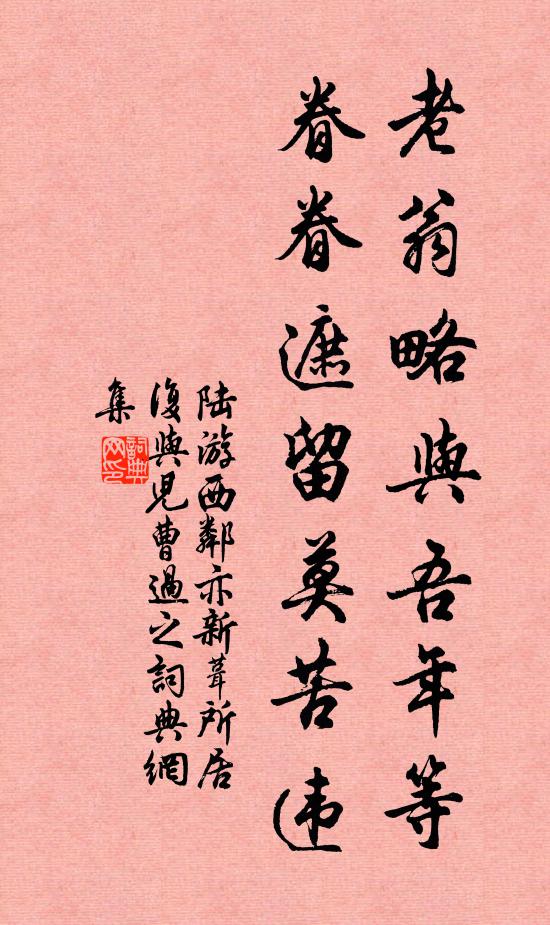 老翁略與吾年等
眷眷遮留莫苦违
陆游西鄰亦新葺所居
復與兒曹過之詞典網
集
詞典
网印